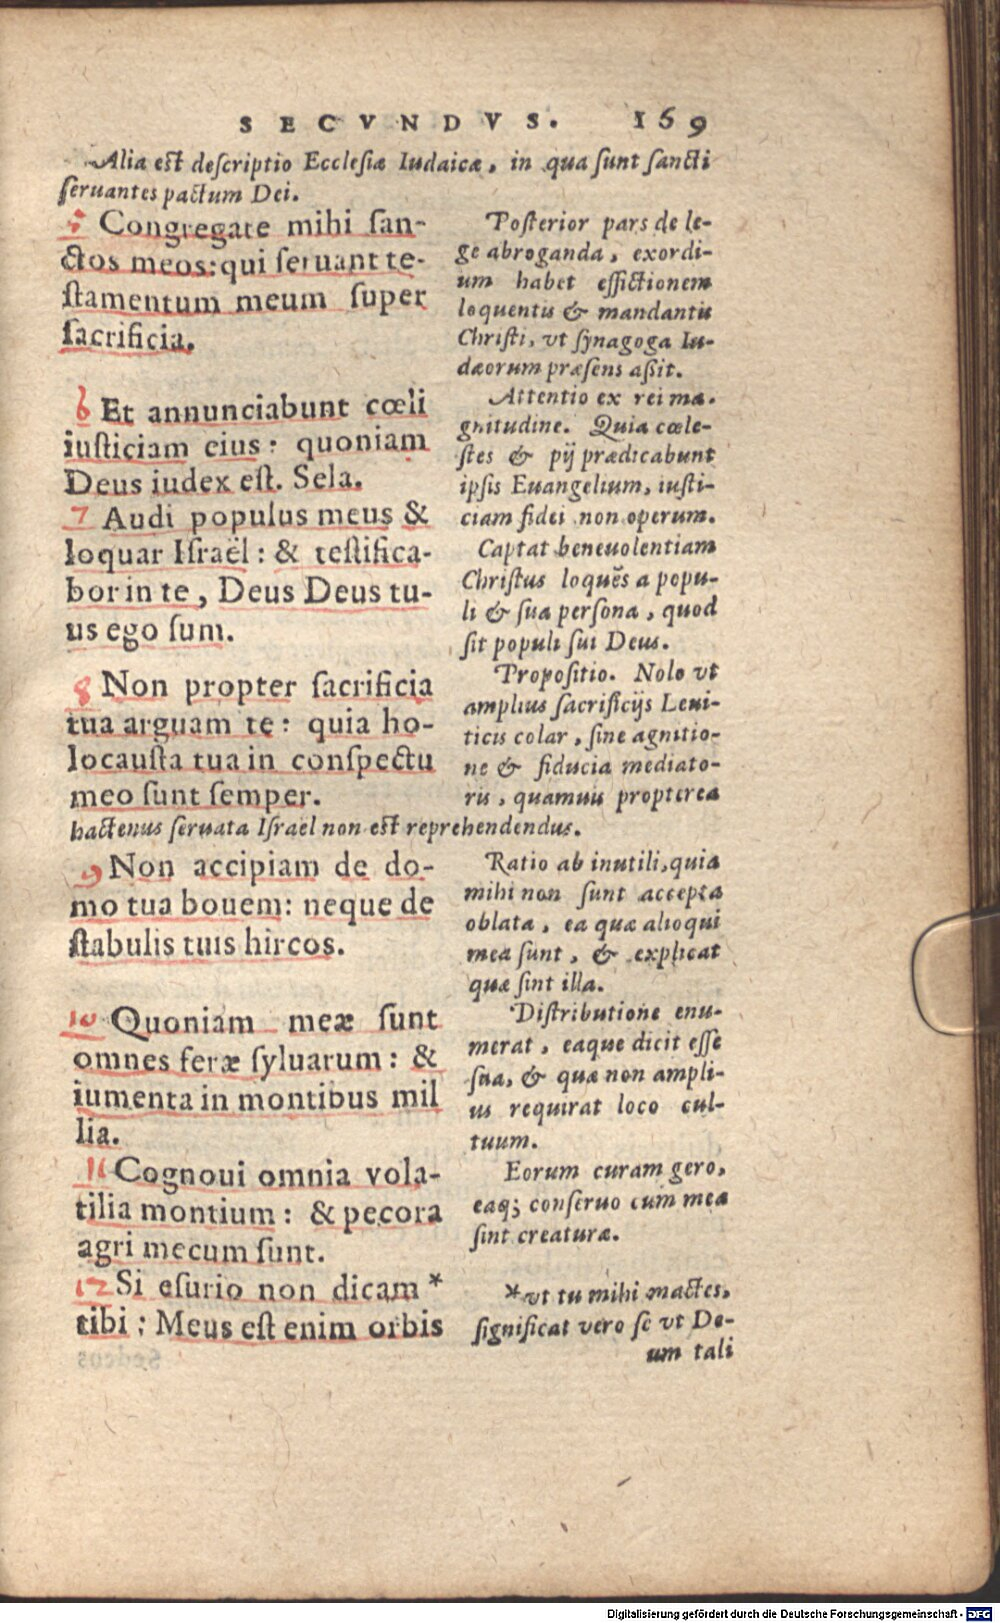 SECVNDVS. 169
Alia est descriptio Ecclesiæ Iudaicæ, in qua sunt sancti
seruantes pactum Dei.
5 Congregate mihi san-
ctos meos: qui seruant te-
stamentum meum super
sacrificia.
Posterior pars de le-
ge abroganda, exordi-
um habet effictionem
loquentis & mandantis
Christi, vt synagoga Iu-
dæorum præsens aßit.
6 Et annunciabunt cœli
iusticiam eius: quoniam
Deus iudex est. Sela.
Attentio ex rei ma-
gnitudine. Quia cœle-
stes & pij prædicabunt
ipsis Euangelium, iusti-
ciam fidei non operum.
7 Audi populus meus &
loquar Israël: & testifica-
bor in te, Deus Deus tu-
us ego sum.
Captat beneuolentiam
Christus loquẽs a popu-
li & sua persona, quod
sit populi sui Deus.
8 Non propter sacrificia
tua arguam te: quia ho-
locausta tua in conspectu
meo sunt semper.
Propositio. Nolo vt
amplius sacrificijs Leui-
ticis colar, sine agnitio-
ne & fiducia mediato-
ris, quamuis propterea
hactenus seruata Israel non est reprehendendus.
9 Non accipiam de do-
mo tua bouem: neque de
stabulis tuis hircos.
Ratio ab inutili, quia
mihi non sunt accepta
oblata, ea quæ alioqui
mea sunt, & explicat
quæ sint illa.
10 Quoniam meæ sunt
omnes feræ syluarum: &
iumenta in montibus mil
lia.
Distributione enu-
merat, eaque dicit esse
sua, & quæ non ampli-
us requirat loco cul-
tuum.
11 Cognoui omnia vola-
tilia montium: & pecora
agri mecum sunt.
Eorum curam gero,
eaq; conseruo cum mea
sint creaturæ.
12 Si esurio non dicam *
tibi: Meus est enim orbis
* vt tu mihi mactes,
significat vero se vt De-
um tali
Digitalisierung gefördert durch die Deutsche Forschungsgemeinschaft - DFG